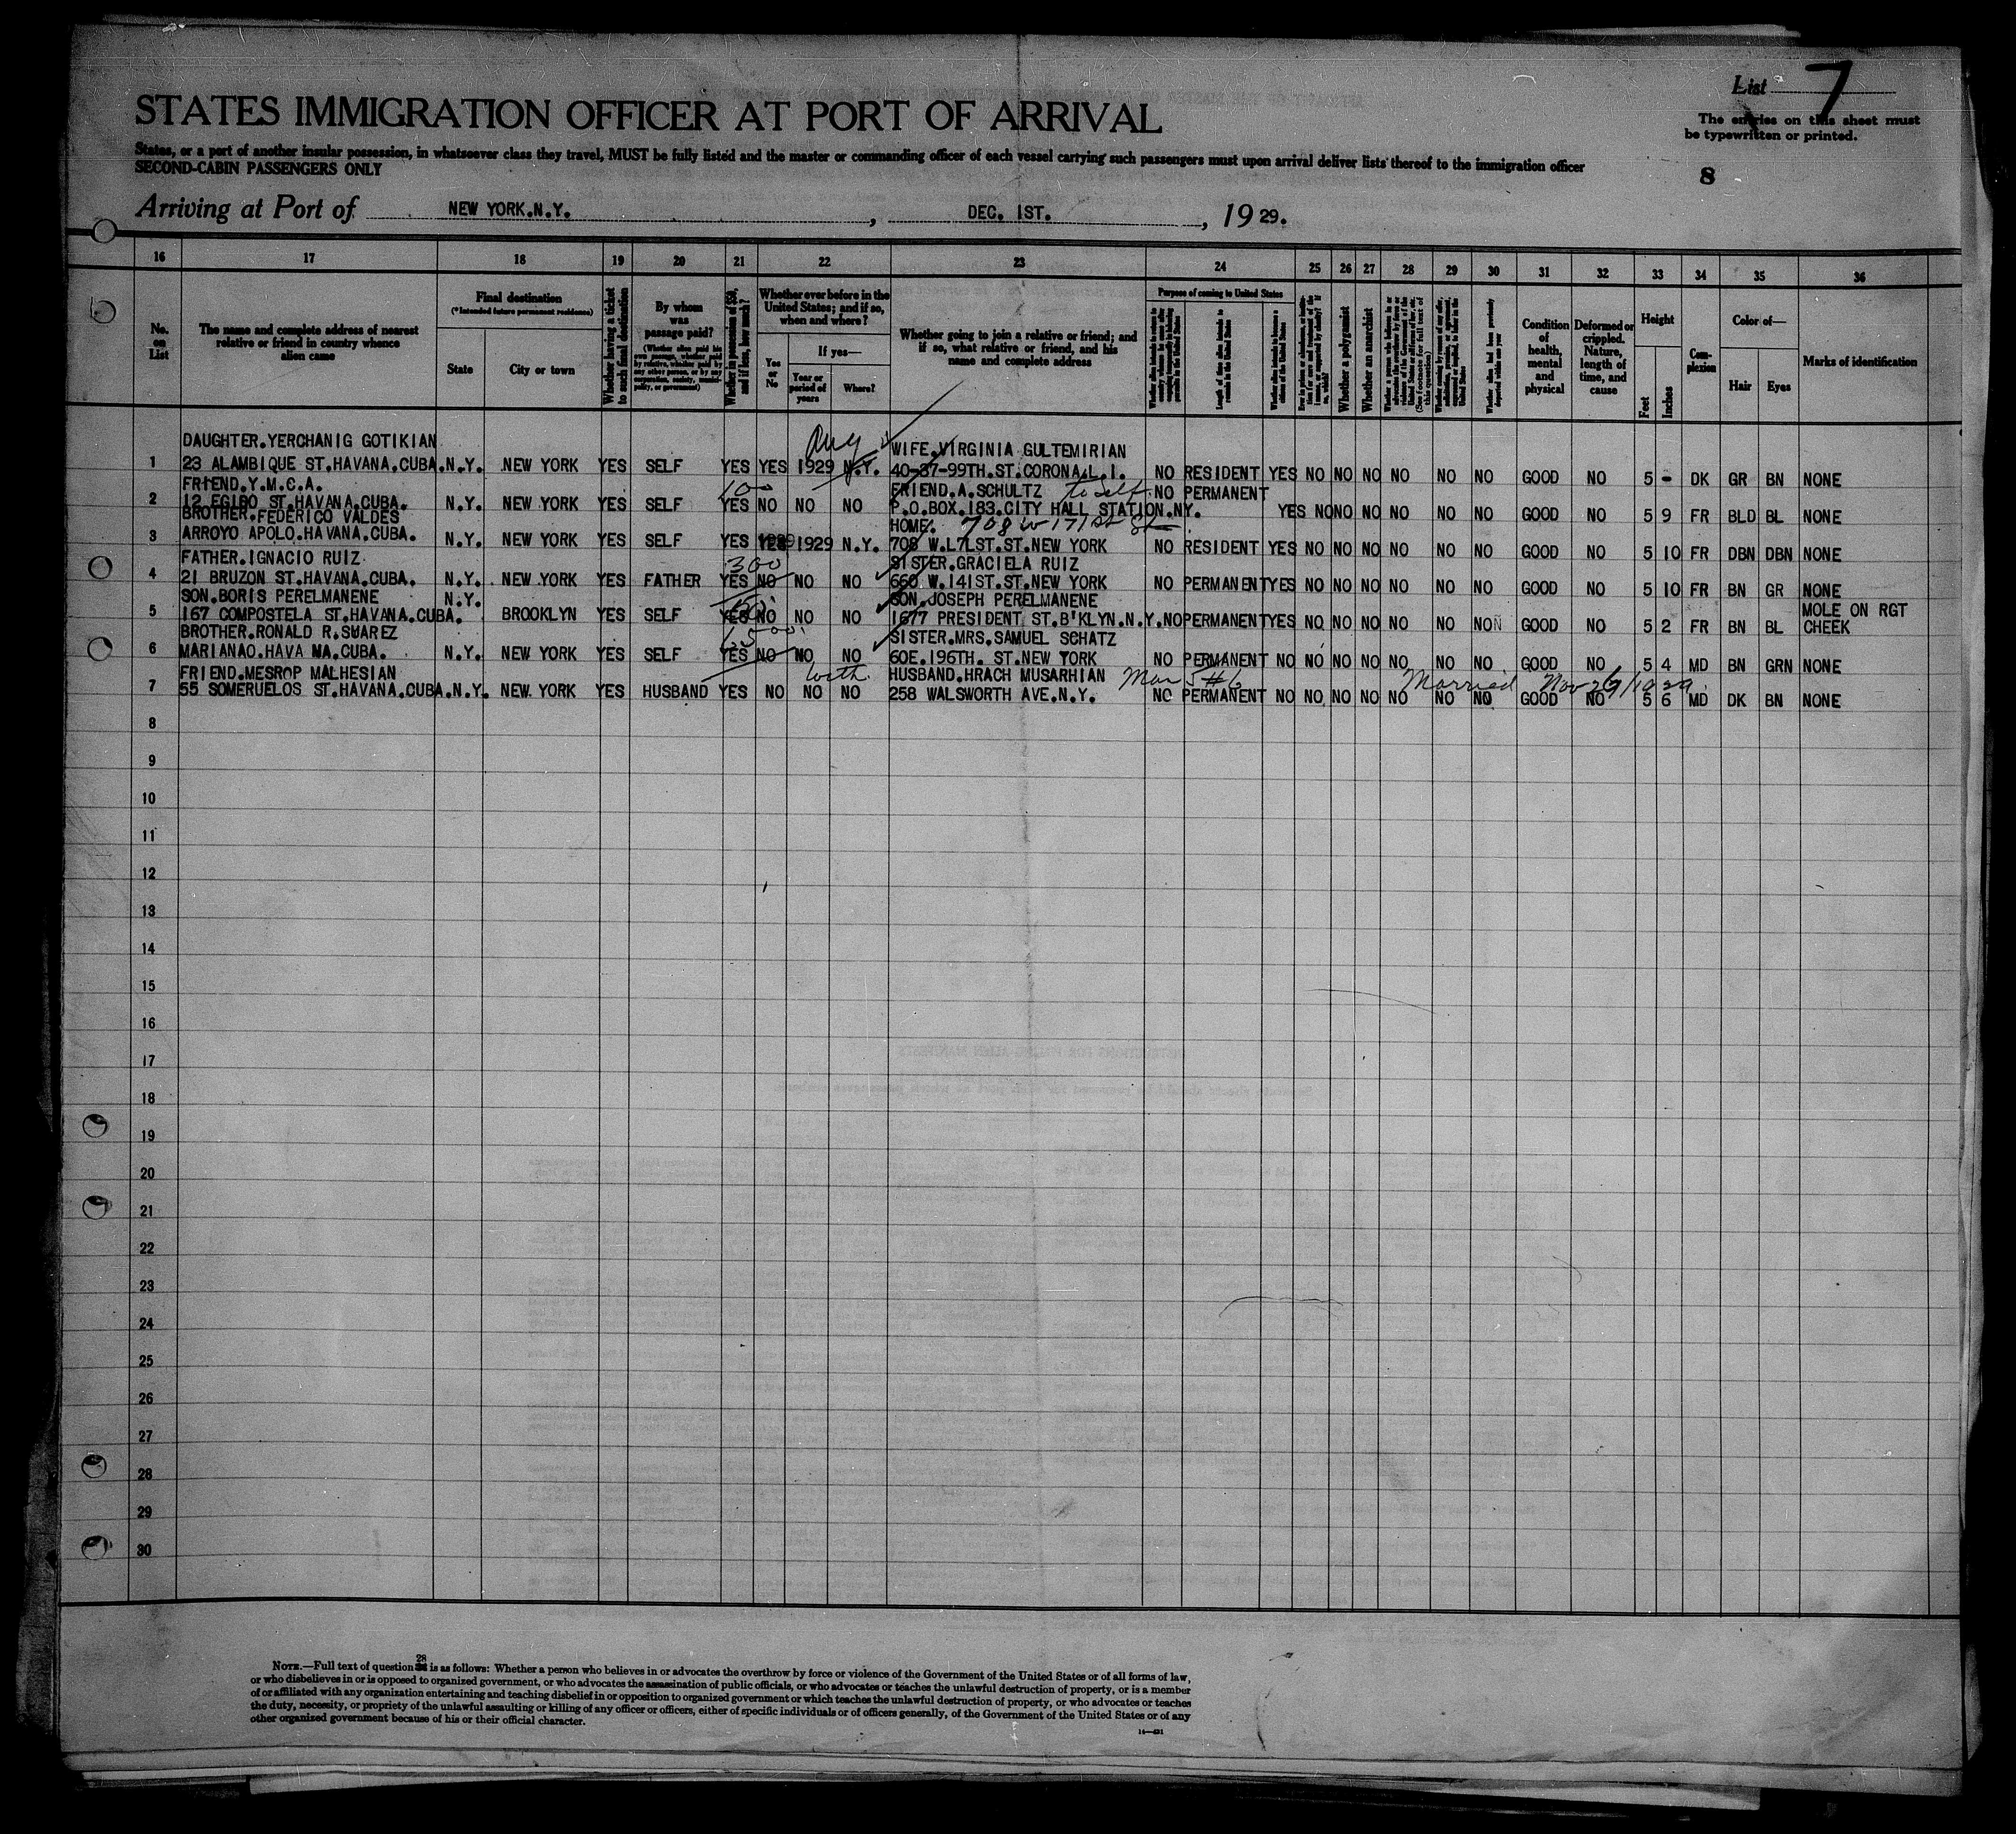 List 7
STATES IMMIGRATION OFFICER AT PORT OF ARRIVAL
The entries on this sheet must
be typewritten or printed.
States, or a port of another insular possession, in whatsoever class they travel, MUST be fully listed and the master or commanding officer of each vessel carrying such passengers must upon arrival deliver lists thereof to the immigration officer
SECOND-CABIN PASSENGERS ONLY
8
Arriving at Port of NEW YORK.N.Y. , DEC. 1ST. , 19 29.
16 17 18 19 20 21 22 23 24 25 26 27 28 29 30 31 32 33 34 35 36
No. on List
The name and complete address of nearest relative or friend in country whence alien came
Final destination
(*Intended future permanent residence)
State
City or town
Whether having a ticket to such final destination
By whom was passage paid?
(Whether alien paid his own passage, whether paid by relative, whether paid by any other person, or by any corporation, society, municipality, or government)
Whether in possession of $50, and if less, how much?
Whether ever before in the United States; and if so, when and where?
Yes or No
If yes—
Year or period of years
Where?
Whether going to join a relative or friend; and if so, what relative or friend, and his name and complete address
Purpose of coming to United States
Length of time alien intends to remain in the United States
Whether alien intends to become a citizen of the United States
Whether a polygamist
Whether an anarchist
Whether alien had been previously deported within one year
Condition of health, mental and physical
Deformed or crippled. Nature, length of time, and cause
Height
Feet
Inches
Complexion
Color of—
Hair
Eyes
Marks of identification
DAUGHTER.YERCHANIG GOTIKIAN Aug WIFE.VIRGINIA GULTEMIRIAN
1 23 ALAMBIQUE ST.HAVANA.CUBA. N.Y. NEW YORK YES SELF YES YES 1929 N.Y. 40-37-99TH.ST.CORONA.L.I. NO RESIDENT YES NO NO NO NO NO NO GOOD NO 5 - DK GR BN NONE
FRIEND.Y.M.C.A. 100 FRIEND.A.SCHULTZ to self NO PERMANENT
2 12 EGIDO ST.HAVANA.CUBA. N.Y. NEW YORK YES SELF YES NO NO NO P.O.BOX.183.CITY HALL STATION.NY. YES NO NO NO NO NO NO GOOD NO 5 9 FR BLD BL NONE
BROTHER.FEDERICO VALDES HOME. 708 W 171st St
3 ARROYO APOLO.HAVANA.CUBA. N.Y. NEW YORK YES SELF YES YES 1929 N.Y. 708 W.L7LST.ST.NEW YORK NO RESIDENT YES NO NO NO NO NO NO GOOD NO 5 10 FR DBN DBN NONE
FATHER.IGNACIO RUIZ 300 SISTER.GRACIELA RUIZ
4 21 BRUZON ST.HAVANA.CUBA. N.Y. NEW YORK YES FATHER YES NO NO NO 660 W.141ST.ST.NEW YORK NO PERMANENT YES NO NO NO NO NO NO GOOD NO 5 10 FR BN GR NONE
SON.BORIS PERELMANENE N.Y. SON.JOSEPH PERELMANENE MOLE ON RGT
5 167 COMPOSTELA ST.HAVANA.CUBA. BROOKLYN YES SELF YES NO NO NO 1677 PRESIDENT ST.B'KLYN.N.Y. NO PERMANENT YES NO NO NO NO NO NO GOOD NO 5 2 FR BN BL CHEEK
BROTHER.RONALD R.SUAREZ SISTER.MRS.SAMUEL SCHATZ
6 MARIANAO.HAVA NA.CUBA. N.Y. NEW YORK YES SELF YES NO NO NO 60E.196TH. ST.NEW YORK NO PERMANENT NO NO NO NO NO NO NO GOOD NO 5 4 MD BN GRN NONE
FRIEND.MESROP MALHESIAN with HUSBAND.HRACH MUSARHIAN Married Nov 26/1929
7 55 SOMERUELOS ST.HAVANA.CUBA. N.Y. NEW YORK YES HUSBAND YES NO NO NO 258 WALSWORTH AVE.N.Y. NO PERMANENT NO NO NO NO NO NO NO GOOD NO 5 6 MD DK BN NONE
8
9
10
11
12
13
14
15
16
17
18
19
20
21
22
23
24
25
26
27
28
29
30
NOTE.—Full text of question 28 is as follows: Whether a person who believes in or advocates the overthrow by force or violence of the Government of the United States or of all forms of law,
or who disbelieves in or is opposed to organized government, or who advocates the assassination of public officials, or who advocates or teaches the unlawful destruction of property, or is a member
of or affiliated with any organization entertaining and teaching disbelief in or opposition to organized government or which teaches the unlawful destruction of property, or who advocates or teaches
the duty, necessity, or propriety of the unlawful assaulting or killing of any officer or officers, either of specific individuals or of officers generally, of the Government of the United States or of any
other organized government because of his or their official character.